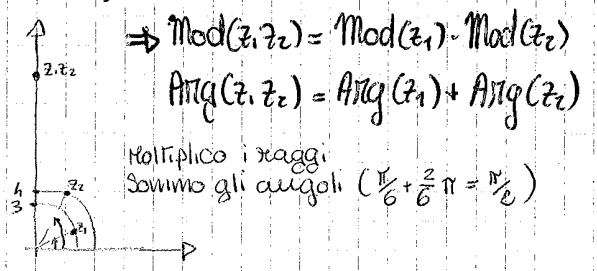 ⇒ Mod(z₁z₂) = Mod(z₁)·Mod(z₂)
Arg(z₁z₂) = Arg(z₁) + Arg(z₂)
Moltiplico i raggi
Sommo gli angoli (π/6 + 2/6 π = π/2)
z₁z₂
4
z₂
3
z₁